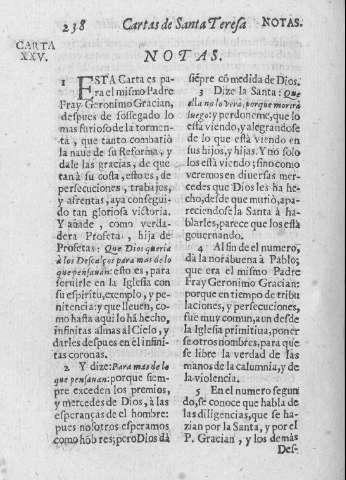 238 Cartas de Santa Teresa NOTAS.
CARTA
XXV.
NOTAS.
1 ESTA Carta es pa-
ra el mismo Padre
Fray Geronimo Gracian,
despues de sossegado lo
mas furioso de la tormen-
ta, que tanto combatiò
la nave de su Reforma, y
dale las gracias, de que
tan à su costa, esto es, de
persecuciones, trabajos,
y afrentas, aya consegui-
do tan gloriosa victoria.
Y añade, como verda-
dera Profeta, hija de
Profetas: Que Dios queria
à los Descalços para mas de lo
que pensauan: esto es, para
seruirle en la Iglesia con
su espiritu, exemplo, y pe-
nitencia: y que lleuen, co-
mo hasta aqui lo hã hecho,
infinitas almas al Cielo, y
darles despues en èl infini-
tas coronas.
2 Y dize: Para mas de lo
que pensauan: porque siem-
pre exceden los premios,
y mercedes de Dios, à las
esperanças de el hombre:
pues nosotros esperamos
como hõbres; pero Dios dà
siẽpre cõ medida de Dios.
3 Dize la Santa: Que
ella no lo verà, porque morirà
luego: y perdoneme, que lo
està viendo, y alegrandose
de lo que està viendo en
sus hijos, y hijas. Y no solo
los està viendo; sino como
veremos en diuersas mer-
cedes que Dios les ha he-
cho, desde que murió, apa-
reciendose la Santa à ha-
blarles, parece que los està
gouernando.
4 Al fin de el numero,
dà la norabuena à Pablo;
que era el mismo Padre
Fray Geronimo Gracian:
porque en tiempo de tribu-
laciones, y persecuciones,
fue muy comun, aun desde
la Iglesia primitiua, poner
se otros nombres, para que
se libre la verdad de las
manos de la calumnia, y de
la violencia.
5 En el numero segun
do, se conoce que habla de
las diligencias, que se ha-
zian por la Santa, y por el
P. Gracian, y los demàs
Des-